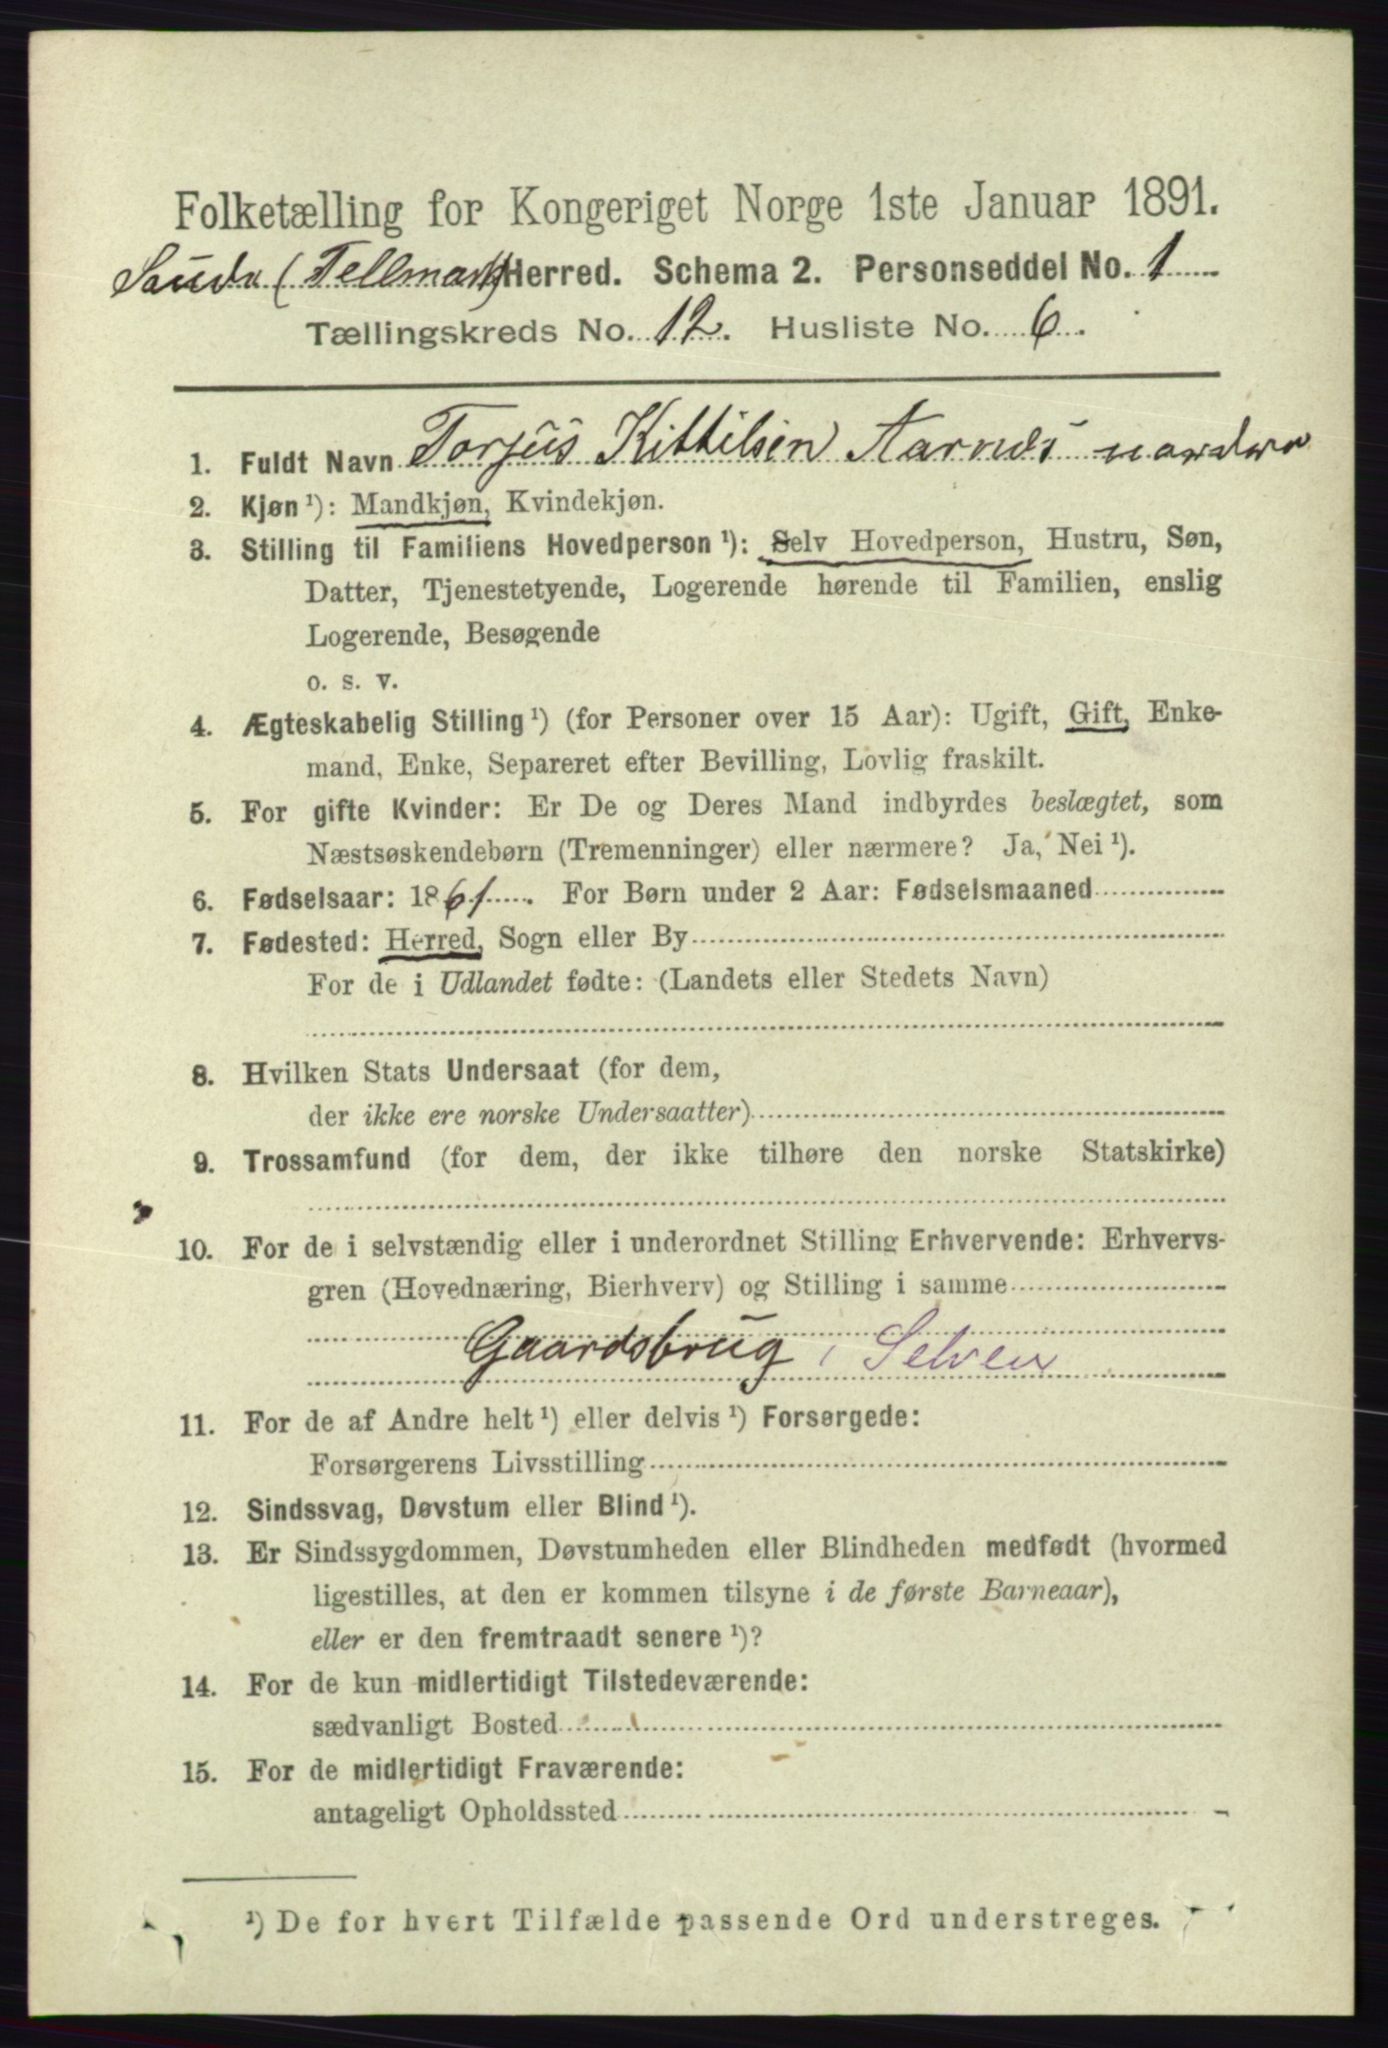 Folketælling for Kongeriget Norge 1ste Januar 1891.
Saude (Tellmark) Herred. Schema 2. Personseddel No. 1
Tællingskreds No. 12. Husliste No. 6.
1. Fuldt Navn Torjus Kittilsen Aarnes nordre
2. Kjøn ¹): Mandkjøn, Kvindekjøn.
3. Stilling til Familiens Hovedperson ¹): Selv Hovedperson, Hustru, Søn,
Datter, Tjenestetyende, Logerende hørende til Familien, enslig
Logerende, Besøgende
o. s. v.
4. Ægteskabelig Stilling ¹) (for Personer over 15 Aar): Ugift, Gift, Enke-
mand, Enke, Separeret efter Bevilling, Lovlig fraskilt.
5. For gifte Kvinder: Er De og Deres Mand indbyrdes beslægtet, som
Næstsøskendebørn (Tremenninger) eller nærmere? Ja, Nei ¹).
6. Fødselsaar: 1861. For Børn under 2 Aar: Fødselsmaaned
7. Fødested: Herred, Sogn eller By
For de i Udlandet fødte: (Landets eller Stedets Navn)
8. Hvilken Stats Undersaat (for dem,
der ikke ere norske Undersaatter)
9. Trossamfund (for dem, der ikke tilhøre den norske Statskirke)
10. For de i selvstændig eller i underordnet Stilling Erhvervende: Erhvervs-
gren (Hovednæring, Bierhverv) og Stilling i samme
Gaardsbrug, Selveu
11. For de af Andre helt ¹) eller delvis ¹) Forsørgede:
Forsørgerens Livsstilling
12. Sindssvag, Døvstum eller Blind ¹).
13. Er Sindssygdommen, Døvstumheden eller Blindheden medfødt (hvormed
ligestilles, at den er kommen tilsyne i de første Barneaar),
eller er den fremtraadt senere ¹)?
14. For de kun midlertidigt Tilstedeværende:
sædvanligt Bosted
15. For de midlertidigt Fraværende:
antageligt Opholdssted
¹) De for hvert Tilfælde passende Ord understreges.